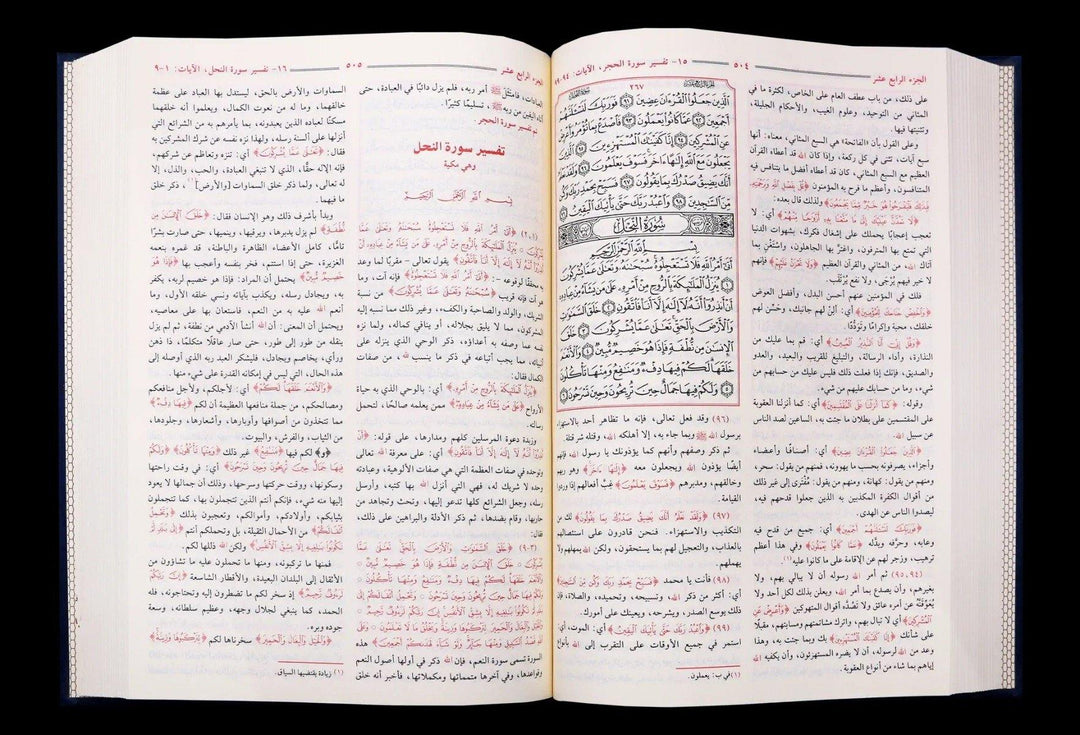 الجزء الرابع عشر
٥٠٤
١٥- تفسير سورة الحجر، الآيات: ٩٤-٩٩
على ذلك، من باب عطف العام على الخاص، لكثرة ما في
المثاني من التوحيد، وعلوم الغيب، والأحكام الجليلة،
وتثنيتها فيها.
وعلى القول بأن «الفاتحة» هي السبع المثاني، معناه: أنها
سبع آيات، تثنى في كل ركعة، وإذا كان الله قد أعطاه القرآن
العظيم مع السبع المثاني، كان قد أعطاه أفضل ما يتنافس فيه
المتنافسون، وأعظم ما فرح به المؤمنون ﴿قُلْ بِفَضْلِ اللَّهِ وَبِرَحْمَتِهِ
فَبِذَلِكَ فَلْيَفْرَحُوا هُوَ خَيْرٌ مِمَّا يَجْمَعُونَ﴾ ولذلك قال بعده:
﴿لَا تَمُدَّنَّ عَيْنَيْكَ إِلَى مَا مَتَّعْنَا بِهِ أَزْوَاجًا مِنْهُمْ﴾ أي: لا
تعجب إعجابًا يحملك على إشغال فكرك، بشهوات الدنيا
التي تمتع بها المترفون، واغترَّ بها الجاهلون، واستغْنِ بما
آتاك الله، من المثاني والقرآن العظيم ﴿وَلَا تَحْزَنْ عَلَيْهِمْ﴾ فإنهم
لا خير فيهم يُرْجى، ولا نفع يُرْتَقَب.
فلك في المؤمنين عنهم أحسن البدل، وأفضل العوض
﴿وَاخْفِضْ جَنَاحَكَ لِلْمُؤْمِنِينَ﴾ أي: أَلِنْ لهم جانبك، وحَسِّن لهم
خلقك، محبة وإكرامًا وتودُّدًا.
﴿وَقُلْ إِنِّي أَنَا النَّذِيرُ الْمُبِينُ﴾ أي: قم بما عليك من
النذارة، وأداء الرسالة، والتبليغ للقريب والبعيد، والعدو
والصديق، فإنك إذا فعلت ذلك فليس عليك من حسابهم من
شيء، وما من حسابك عليهم من شيء.
وقوله: ﴿كَمَا أَنْزَلْنَا عَلَى الْمُقْتَسِمِينَ﴾ أي: كما أنزلنا العقوبة
على المقتسمين على بطلان ما جئت به، الساعين لصد الناس
عن سبيل الله.
﴿الَّذِينَ جَعَلُوا الْقُرْآنَ عِضِينَ﴾ أي: أصنافًا وأعضاء
وأجزاء، يصرفونه بحسب ما يهوونه، فمنهم من يقول: سحر،
ومنهم من يقول: كهانة، ومنهم من يقول: مُفْتَرًى إلى غير ذلك
من أقوال الكفرة المكذبين به الذين جعلوا قدحهم فيه،
ليصدوا الناس عن الهدى.
﴿فَوَرَبِّكَ لَنَسْأَلَنَّهُمْ أَجْمَعِينَ﴾ أي: جميع من قدح فيه
وعابه، وحرَّفه وبدَّله ﴿عَمَّا كَانُوا يَعْمَلُونَ﴾ وفي هذا أعظم
ترهيب، وزجر لهم عن الإقامة على ما كانوا عليه(١).
(٩٤،٩٥) ثم أمر الله رسوله أن لا يبالي بهم، ولا
بغيرهم، وأن يصدع بما أمر الله، ويعلن بذلك لكل أحد ولا
يُعَوِّقَنَّه عن أمره عائق ولا تَصُدَّه أقوال المتهوكين ﴿وَأَعْرِضْ عَنِ
الْمُشْرِكِينَ﴾ أي: لا تبال بهم، واترك مشاتمتهم ومسابتهم، مقبلًا
على شأنك ﴿إِنَّا كَفَيْنَاكَ الْمُسْتَهْزِئِينَ﴾ بك وبما جئت به، وهذا
وعد من الله لرسوله، أن لا يضره المستهزئون، وأن يكفيه الله
إياهم بما شاء من أنواع العقوبة.
٢٦٧
الَّذِينَ جَعَلُوا الْقُرْءَانَ عِضِينَ ٩١ فَوَرَبِّكَ لَنَسْـَٔلَنَّهُمْ
أَجْمَعِينَ ٩٢ عَمَّا كَانُوا يَعْمَلُونَ ٩٣ فَاصْدَعْ بِمَا تُؤْمَرُ وَأَعْرِضْ
عَنِ الْمُشْرِكِينَ ٩٤ إِنَّا كَفَيْنَٰكَ الْمُسْتَهْزِءِينَ ٩٥ الَّذِينَ
يَجْعَلُونَ مَعَ اللَّهِ إِلَٰهًا ءَاخَرَ فَسَوْفَ يَعْلَمُونَ ٩٦ وَلَقَدْ نَعْلَمُ
أَنَّكَ يَضِيقُ صَدْرُكَ بِمَا يَقُولُونَ ٩٧ فَسَبِّحْ بِحَمْدِ رَبِّكَ وَكُن
مِّنَ السَّٰجِدِينَ ٩٨ وَاعْبُدْ رَبَّكَ حَتَّىٰ يَأْتِيَكَ الْيَقِينُ ٩٩
سُورَةُ النَّحْلِ
بِسْمِ اللَّهِ الرَّحْمَٰنِ الرَّحِيمِ
أَتَىٰ أَمْرُ اللَّهِ فَلَا تَسْتَعْجِلُوهُ سُبْحَٰنَهُ وَتَعَٰلَىٰ عَمَّا يُشْرِكُونَ
١ يُنَزِّلُ الْمَلَٰئِكَةَ بِالرُّوحِ مِنْ أَمْرِهِ عَلَىٰ مَن يَشَاءُ مِنْ عِبَادِهِ
أَنْ أَنذِرُوا أَنَّهُ لَا إِلَٰهَ إِلَّا أَنَا فَاتَّقُونِ ٢ خَلَقَ السَّمَٰوَٰتِ
وَالْأَرْضَ بِالْحَقِّ تَعَٰلَىٰ عَمَّا يُشْرِكُونَ ٣ خَلَقَ
الْإِنسَٰنَ مِن نُّطْفَةٍ فَإِذَا هُوَ خَصِيمٌ مُّبِينٌ ٤ وَالْأَنْعَٰمَ
خَلَقَهَا لَكُمْ فِيهَا دِفْءٌ وَمَنَٰفِعُ وَمِنْهَا تَأْكُلُونَ
٥ وَلَكُمْ فِيهَا جَمَالٌ حِينَ تُرِيحُونَ وَحِينَ تَسْرَحُونَ ٦
(٩٦) وقد فعل تعالى، فإنه ما تظاهر أحد بالاستهزاء
برسول الله ﷺ وبما جاء به، إلا أهلكه الله، وقتله شر قتلة.
ثم ذكر وصفهم وأنهم كما يؤذونك يا رسول الله، فإنهم
أيضًا يؤذون الله ويجعلون معه ﴿إِلَهًا آخَرَ﴾ وهو ربهم
وخالقهم، ومدبرهم ﴿فَسَوْفَ يَعْلَمُونَ﴾ غِبَّ أفعالهم إذا وردوا
القيامة.
(٩٧) ﴿وَلَقَدْ نَعْلَمُ أَنَّكَ يَضِيقُ صَدْرُكَ بِمَا يَقُولُونَ﴾ لك من
التكذيب والاستهزاء. فنحن قادرون على استئصالهم
بالعذاب، والتعجيل لهم بما يستحقون، ولكن الله يمهلهم ولا
يهملهم.
(٩٨) فأنت يا محمد ﴿فَسَبِّحْ بِحَمْدِ رَبِّكَ وَكُنْ مِنَ السَّاجِدِينَ﴾
أي: أكثر من ذكر الله، وتسبيحه، وتحميده، والصلاة، فإن
ذلك يوسع الصدر، ويشرحه، ويعينك على أمورك.
(٩٩) ﴿وَاعْبُدْ رَبَّكَ حَتَّى يَأْتِيَكَ الْيَقِينُ﴾ أي: الموت، أي:
استمر في جميع الأوقات على التقرب إلى الله بأنواع
(١) في ب: يعملون.
الجزء الرابع عشر
٥٠٥
١٦- تفسير سورة النحل، الآيات: ١-٩
العبادات، فامتثل ﷺ أمر ربه، فلم يزل دائبًا في العبادة، حتى
أتاه اليقين من ربه ﷺ، تسليمًا كثيرًا.
تم تفسير سورة الحجر
تفسير سورة النحل
وهي مكية
بِسْمِ اللَّهِ الرَّحْمَنِ الرَّحِيمِ
(١،٢) ﴿أَتَى أَمْرُ اللَّهِ فَلَا تَسْتَعْجِلُوهُ سُبْحَانَهُ وَتَعَالَى عَمَّا
يُشْرِكُونَ ○ يُنَزِّلُ الْمَلَائِكَةَ بِالرُّوحِ مِنْ أَمْرِهِ عَلَى مَنْ يَشَاءُ مِنْ عِبَادِهِ أَنْ
أَنْذِرُوا أَنَّهُ لَا إِلَهَ إِلَّا أَنَا فَاتَّقُونِ﴾ يقول تعالى - مقربًا لما وعد
به محققًا لوقوعه -: ﴿أَتَى أَمْرُ اللَّهِ فَلَا تَسْتَعْجِلُوهُ﴾ فإنه آت، وما
هو آت فإنه قريب ﴿سُبْحَانَهُ وَتَعَالَى عَمَّا يُشْرِكُونَ﴾ من نسبة
الشريك، والولد والصاحبة والكفء، وغير ذلك مما نسبه إليه
المشركون، مما لا يليق بجلاله، أو ينافي كماله، ولما نزه
نفسه عما وصفه به أعداؤه، ذكر الوحي الذي ينزله على
أنبيائه، مما يجب اتباعه في ذكر ما ينسب لله، من صفات
الكمال فقال:
﴿يُنَزِّلُ الْمَلَائِكَةَ بِالرُّوحِ مِنْ أَمْرِهِ﴾ أي: بالوحي الذي به حياة
الأرواح ﴿عَلَى مَنْ يَشَاءُ مِنْ عِبَادِهِ﴾ ممن يعلمه صالحًا، لتحمل
رسالته.
وزبدة دعوة المرسلين كلهم ومدارها، على قوله: ﴿أَنْ
أَنْذِرُوا أَنَّهُ لَا إِلَهَ إِلَّا أَنَا فَاتَّقُونِ﴾ أي: على معرفة الله تعالى
وتوحده في صفات العظمة التي هي صفات الألوهية، وعبادته
وحده لا شريك له، فهي التي أنزل الله بها كتبه، وأرسل
رسله، وجعل الشرائع كلها تدعو إليها، وتحث وتجاهد من
حاربها، وقام بضدها، ثم ذكر الأدلة والبراهين على ذلك،
فقال:
(٣-٩) ﴿خَلَقَ السَّمَاوَاتِ وَالْأَرْضَ بِالْحَقِّ تَعَالَى عَمَّا
يُشْرِكُونَ ○ خَلَقَ الْإِنْسَانَ مِنْ نُطْفَةٍ فَإِذَا هُوَ خَصِيمٌ مُبِينٌ ○
وَالْأَنْعَامَ خَلَقَهَا لَكُمْ فِيهَا دِفْءٌ وَمَنَافِعُ وَمِنْهَا تَأْكُلُونَ ○
وَلَكُمْ فِيهَا جَمَالٌ حِينَ تُرِيحُونَ وَحِينَ تَسْرَحُونَ ○ وَتَحْمِلُ أَثْقَالَكُمْ إِلَى
بَلَدٍ لَمْ تَكُونُوا بَالِغِيهِ إِلَّا بِشِقِّ الْأَنْفُسِ إِنَّ رَبَّكُمْ لَرَءُوفٌ رَحِيمٌ ○
وَالْخَيْلَ وَالْبِغَالَ وَالْحَمِيرَ لِتَرْكَبُوهَا وَزِينَةً وَيَخْلُقُ مَا لَا تَعْلَمُونَ ○ وَعَلَى
اللَّهِ قَصْدُ السَّبِيلِ وَمِنْهَا جَائِرٌ وَلَوْ شَاءَ لَهَدَاكُمْ أَجْمَعِينَ﴾ هذه
السورة تسمى سورة النعم، فإن الله ذكر في أولها أصول النعم
وقواعدها، وفي آخرها متمماتها ومكملاتها، فأخبر أنه خلق
السماوات والأرض بالحق، ليستدل بها العباد على عظمة
خالقهما، وما له من نعوت الكمال، ويعلموا أنه خلقهما
مسكنًا لعباده الذين يعبدونه، بما يأمرهم به من الشرائع التي
أنزلها على ألسنة رسله، ولهذا نزه نفسه عن شرك المشركين به
فقال: ﴿تَعَالَى عَمَّا يُشْرِكُونَ﴾ أي: تنزه وتعاظم عن شركهم،
فإنه الإله حقًّا، الذي لا تنبغي العبادة، والحب، والذل، إلا
له تعالى، ولما ذكر خلق السماوات [والأرض](١)، ذكر خلق
ما فيهما.
وبدأ بأشرف ذلك وهو الإنسان فقال: ﴿خَلَقَ الْإِنْسَانَ مِنْ
نُطْفَةٍ﴾ لم يزل يدبرها، ويرقيها، وينميها، حتى صارت بشرًا
تامًّا، كامل الأعضاء الظاهرة والباطنة، قد غمره بنعمه
الغزيرة، حتى إذا استتم، فخر بنفسه وأعجب بها ﴿فَإِذَا هُوَ
خَصِيمٌ مُبِينٌ﴾ يحتمل أن المراد: فإذا هو خصيم لربه، يكفر
به، ويجادل رسله، ويكذب بآياته ونسي خلقه الأول، وما
أنعم الله عليه به من النعم، فاستعان بها على معاصيه،
ويحتمل أن المعنى: أن الله أنشأ الآدمي من نطفة، ثم لم يزل
ينقله من طور إلى طور، حتى صار عاقلًا متكلمًا، ذا ذهن
ورأي، يخاصم ويجادل، فليشكر العبد ربه الذي أوصله إلى
هذه الحال، التي ليس في إمكانه القدرة على شيء منها.
﴿وَالْأَنْعَامَ خَلَقَهَا لَكُمْ﴾ أي: لأجلكم، ولأجل منافعكم
ومصالحكم، من جملة منافعها العظيمة أن لكم ﴿فِيهَا دِفْءٌ﴾
مما تتخذون من أصوافها وأوبارها، وأشعارها، وجلودها،
من الثياب، والفرش، والبيوت.
﴿و﴾ لكم فيها ﴿مَنَافِعُ﴾ غير ذلك ﴿وَمِنْهَا تَأْكُلُونَ﴾ ﴿وَلَكُمْ
فِيهَا جَمَالٌ حِينَ تُرِيحُونَ وَحِينَ تَسْرَحُونَ﴾ أي: في وقت راحتها
وسكونها، ووقت حركتها وسرحها، وذلك أن جمالها لا يعود
إليها منه شيء، فإنكم أنتم الذين تتجملون بها، كما تتجملون
بثيابكم، وأولادكم، وأموالكم، وتعجبون بذلك ﴿وَتَحْمِلُ
أَثْقَالَكُمْ﴾ من الأحمال الثقيلة، بل وتحملكم أنتم ﴿إِلَى بَلَدٍ لَمْ
تَكُونُوا بَالِغِيهِ إِلَّا بِشِقِّ الْأَنْفُسِ﴾ ولكن الله ذللها لكم.
فمنها ما تركبونه، ومنها ما تحملون عليه ما تشاؤون من
الأثقال إلى البلدان البعيدة، والأقطار الشاسعة ﴿إِنَّ رَبَّكُمْ
لَرَءُوفٌ رَحِيمٌ﴾ إذ سخر لكم ما تضطرون إليه وتحتاجونه، فله
الحمد، كما ينبغي لجلال وجهه، وعظيم سلطانه، وسعة
جوده وبره.
﴿وَالْخَيْلَ وَالْبِغَالَ وَالْحَمِيرَ﴾ سخرناها لكم ﴿لِتَرْكَبُوهَا وَزِينَةً﴾
(١) زيادة يقتضيها السياق.